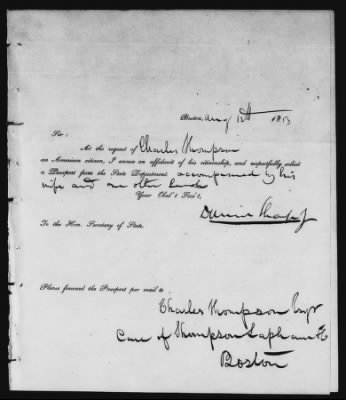 Boston, Aug 12th 1853
Sir:
At the request of Charles Thompson
an American citizen, I annex an affidavit of his citizenship, and respectfully solicit
a Passport from the State Department. accompanied by his
wife and one other
Your Obd't Serv't,
To the Hon. Secretary of State.
Please forward the Passport per mail to
Charles Thompson Esqr
Care of Thompson Lapham & Co
Boston